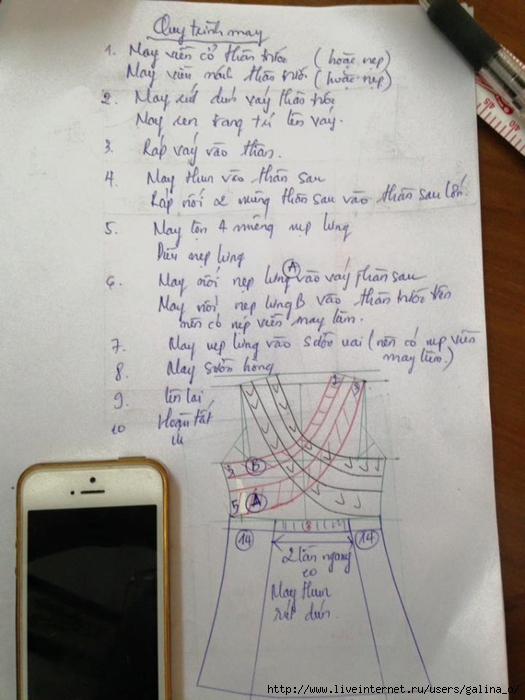 Quy trình may
1. May viền cổ thân trước (hoặc nẹp)
May viền nách thân trước (hoặc nẹp)
2. May rút dún váy thân trước
May ren trang trí lên váy.
3. Ráp váy vào thân.
4. May thun vào thân sau
Ráp nối 2 miếng thân sau vào thân sau lớn.
5. May lộn 4 miếng nẹp lưng
Diễu nẹp lưng
6. May nối nẹp lưng A vào váy thân sau
May nối nẹp lưng B vào thân trước trên
nên có nẹp viền may làm.
7. May nẹp lưng vào sườn vai (nên có nẹp viền
may làm.)
8. May sườn hông
9. Lên lai
10 Hoàn tất
ủi
2 3
3 B
5 A
14 14
2 lần ngang
eo
May thun
rút dún.
http://www.liveinternet.ru/users/galina_